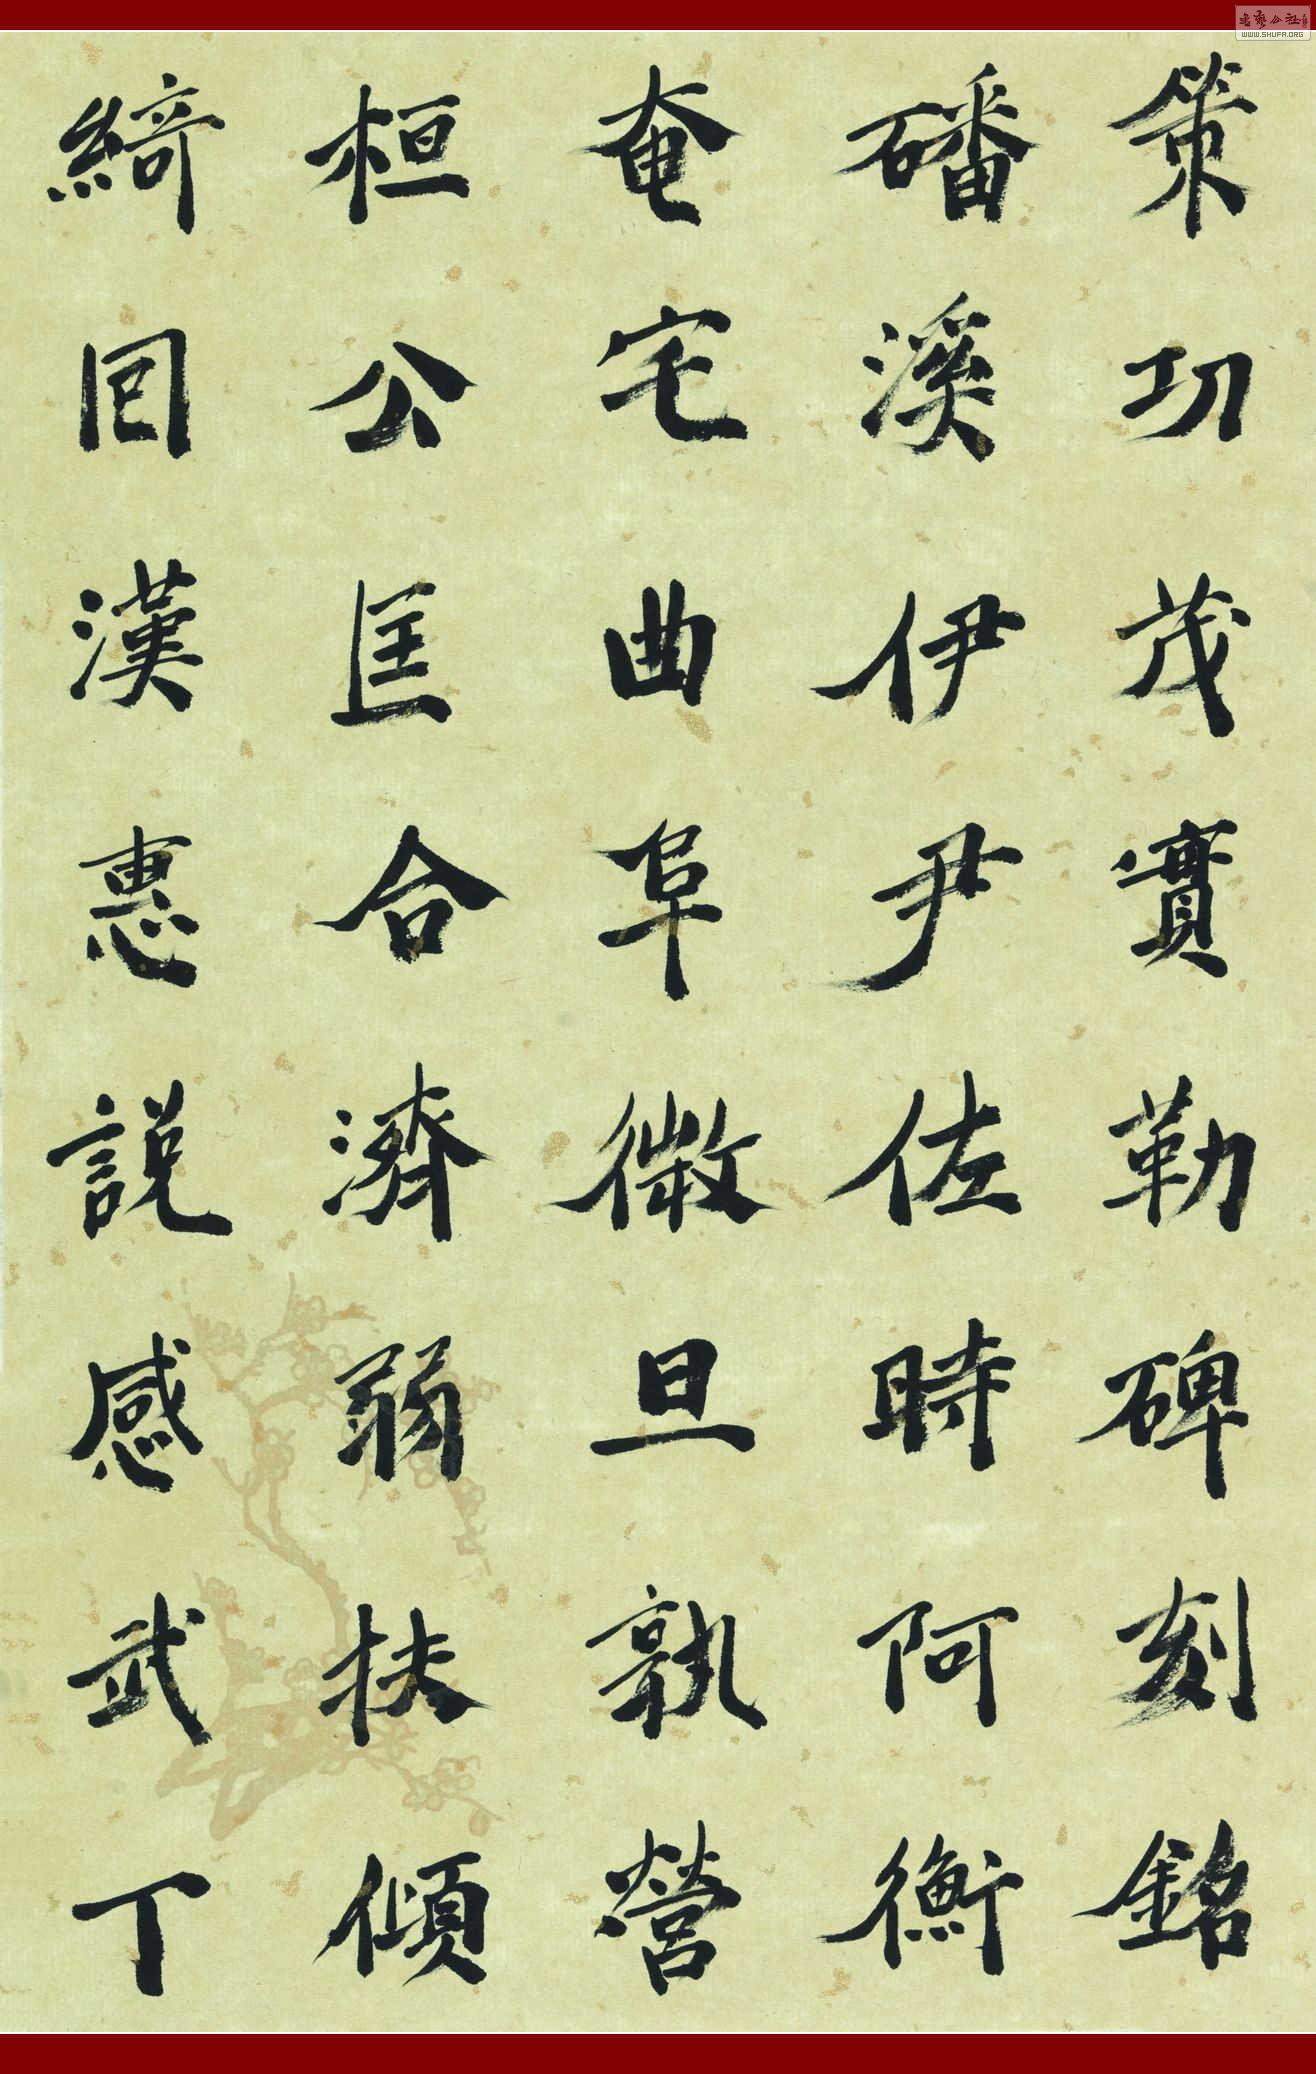 策功茂實勒碑刻銘
磻溪伊尹佐時阿衡
奄宅曲阜微旦孰營
桓公匡合濟弱扶傾
綺回漢惠説感武丁
WWW.SHUFA.ORG